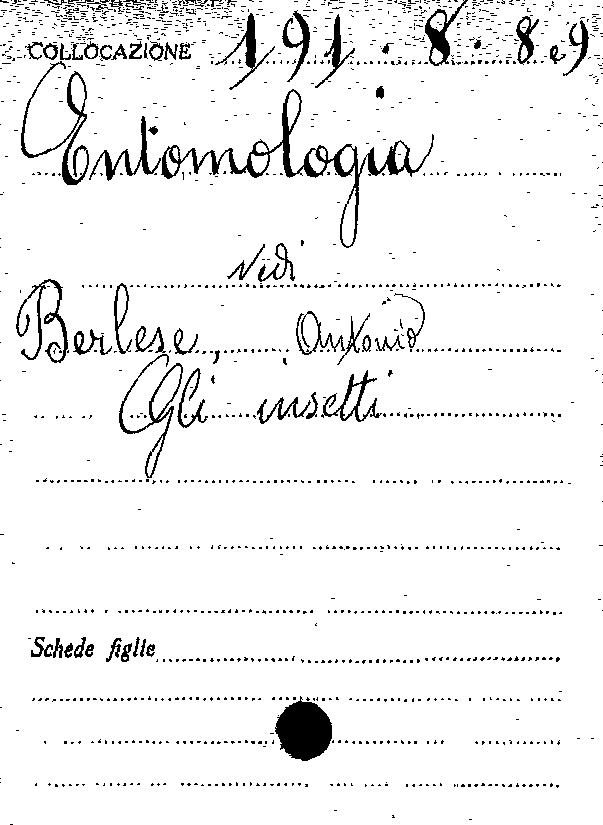 COLLOCAZIONE 191.8.8 e 9
Entomologia
Vedi
Berlese, Antonio
Gli insetti
Schede figlie